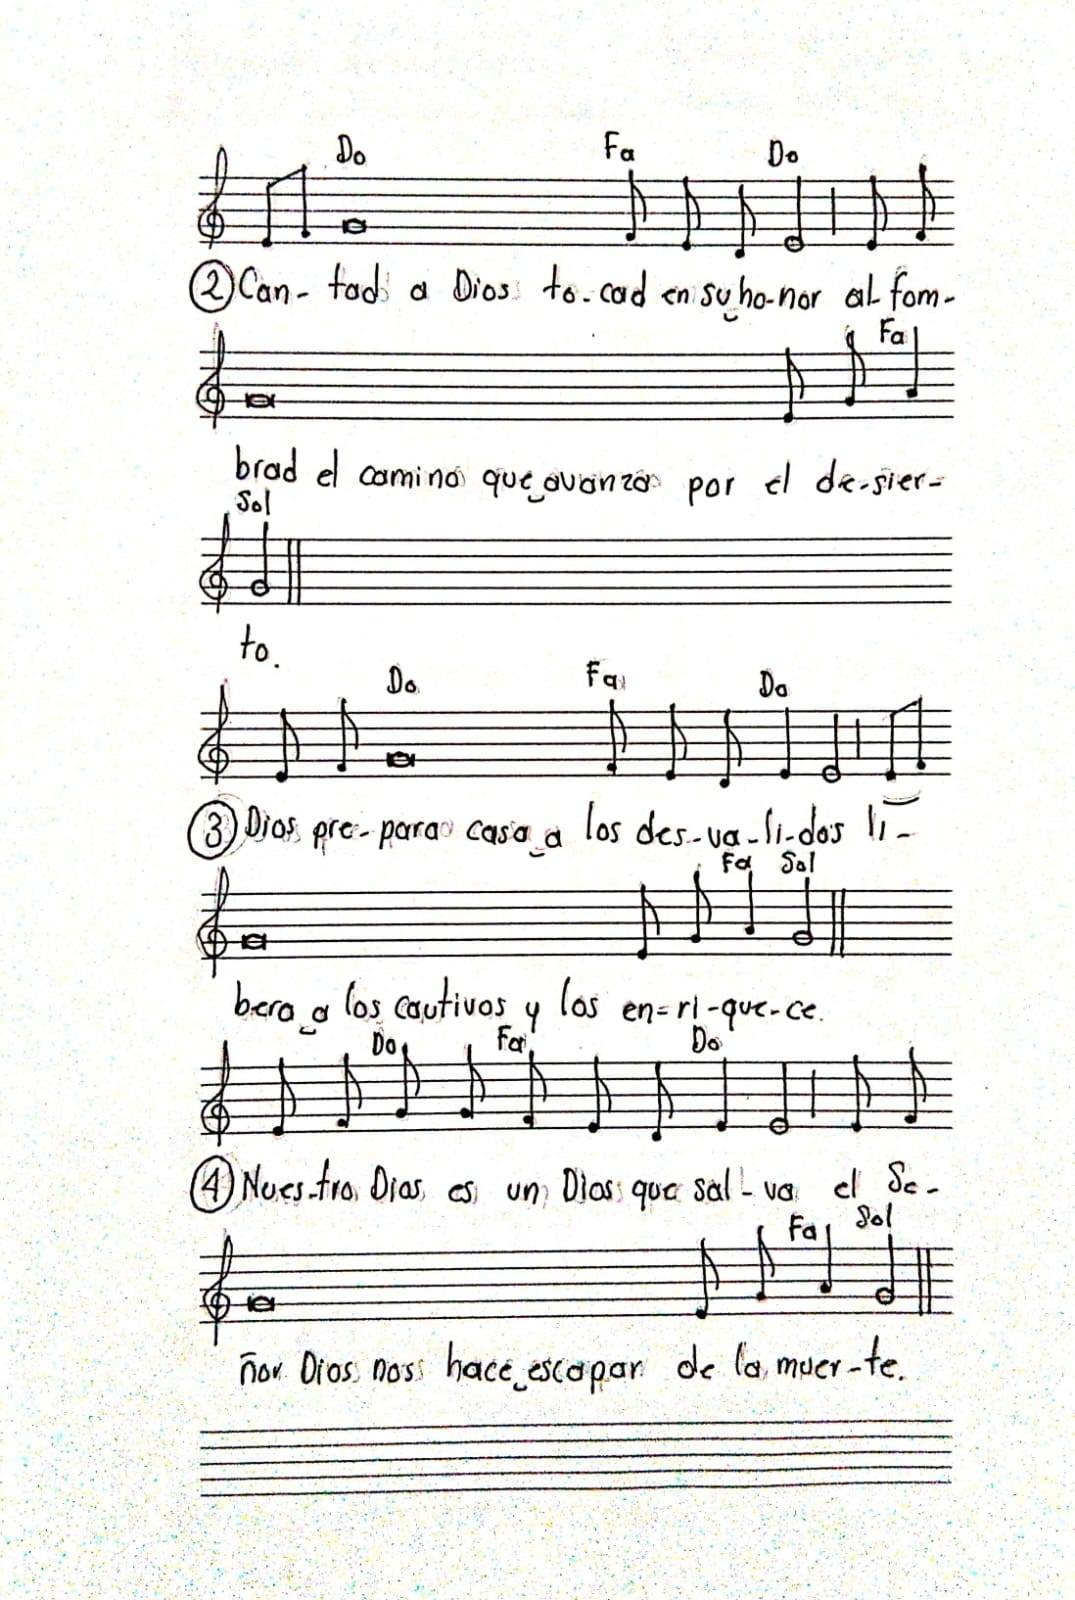 Do Fa Do
② Can- tad a Dios to-cad en su‿ho-nor al-fom-
Fa
brad el camino que‿avanza por el de-sier-
Sol
to.
Do Fa Do
③ Dios pre-para casa‿a los des-va-li-dos li-
Fa Sol
bera‿a los cautivos y los en-ri-que-ce.
Do Fa Do
④ Nues-tro Dios es un Dios que sal-va el Se-
Fa Sol
ñor Dios nos hace‿escapar de la muer-te.